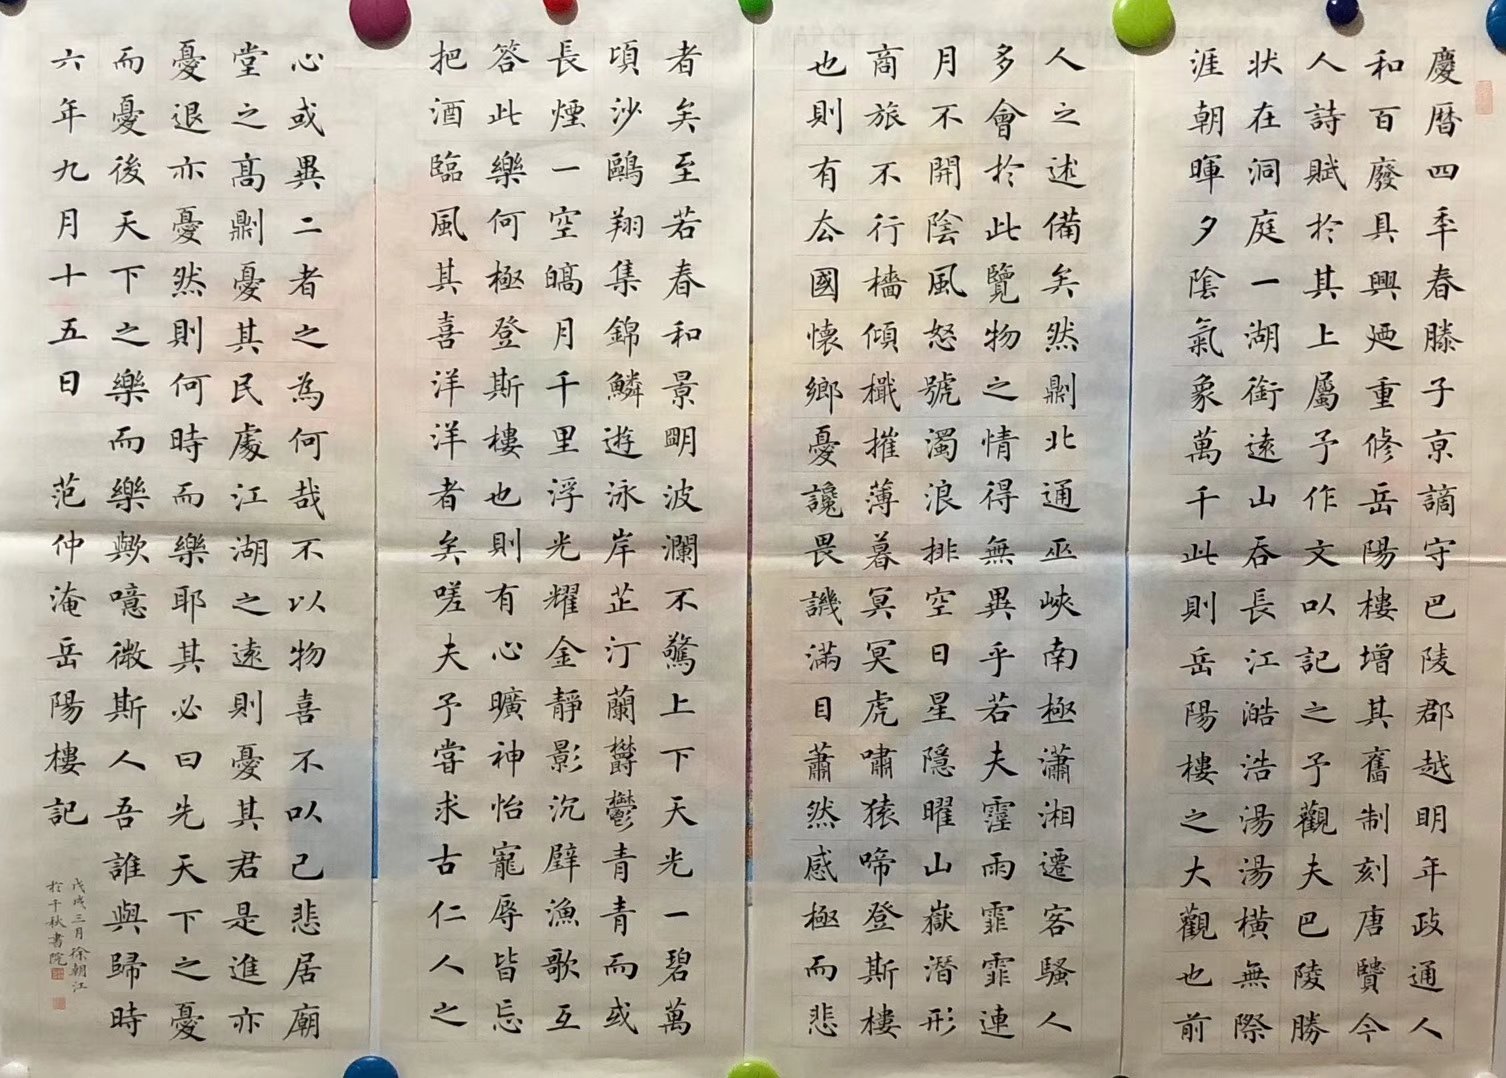 慶曆四秊春滕子京謫守巴陵郡越明年政通人
和百廢具興廼重修岳陽樓增其舊制刻唐賢今
人詩賦於其上屬予作文以記之予觀夫巴陵勝
狀在洞庭一湖銜遠山吞長江浩浩湯湯橫無際
涯朝暉夕陰氣象萬千此則岳陽樓之大觀也前
人之述備矣然則北通巫峽南極瀟湘遷客騷人
多會於此覽物之情得無異乎若夫霪雨霏霏連
月不開陰風怒號濁浪排空日星隱曜山嶽潛形
商旅不行檣傾檝摧薄暮冥冥虎嘯猿啼登斯樓
也則有厺國懷鄉憂讒畏譏滿目蕭然感極而悲
者矣至若春和景朙波瀾不驚上下天光一碧萬
頃沙鷗翔集錦鱗遊泳岸芷汀蘭欝鬱青青而或
長煙一空皜月千里浮光耀金靜影沉壁漁歌互
答此樂何極登斯樓也則有心曠神怡寵辱皆忘
把酒臨風其喜洋洋者矣嗟夫予嘗求古仁人之
心或異二者之為何哉不以物喜不以己悲居廟
堂之高則憂其民處江湖之遠則憂其君是進亦
憂退亦憂然則何時而樂耶其必曰先天下之憂
而憂後天下之樂而樂歟噫微斯人吾誰與歸時
六年九月十五日 范仲淹岳陽樓記
戊戌三月徐朝江
於千秋書院